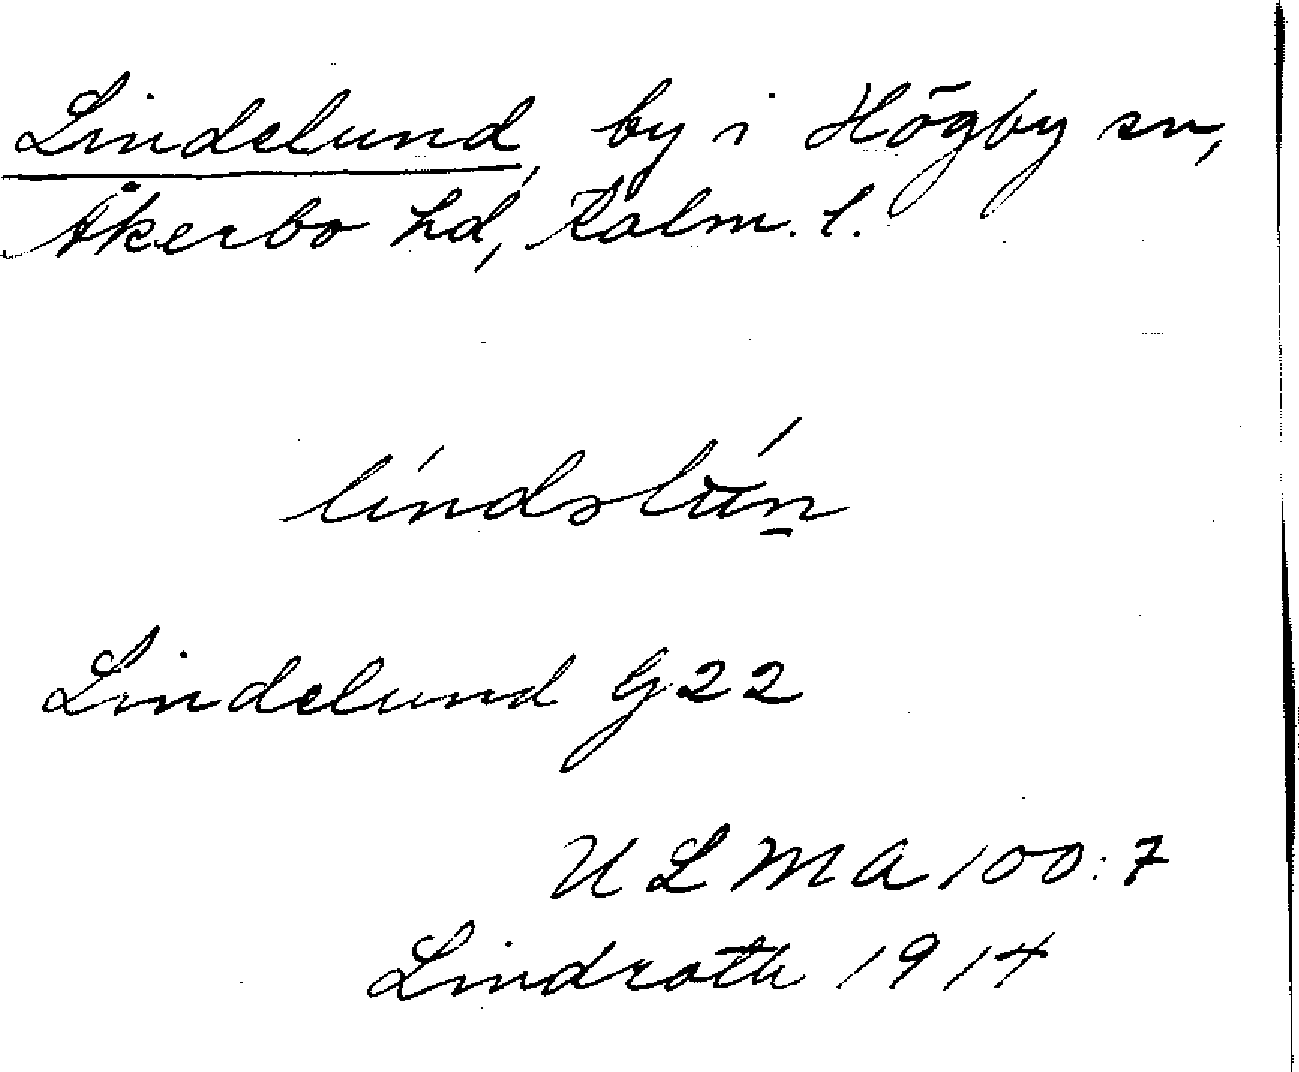 Lindelund, by i Högby sn,
Åkerbo hd, Kalm. l.
líndəlún̠
Lindelund G 22
ULMA 100:7
Lindroth 1914